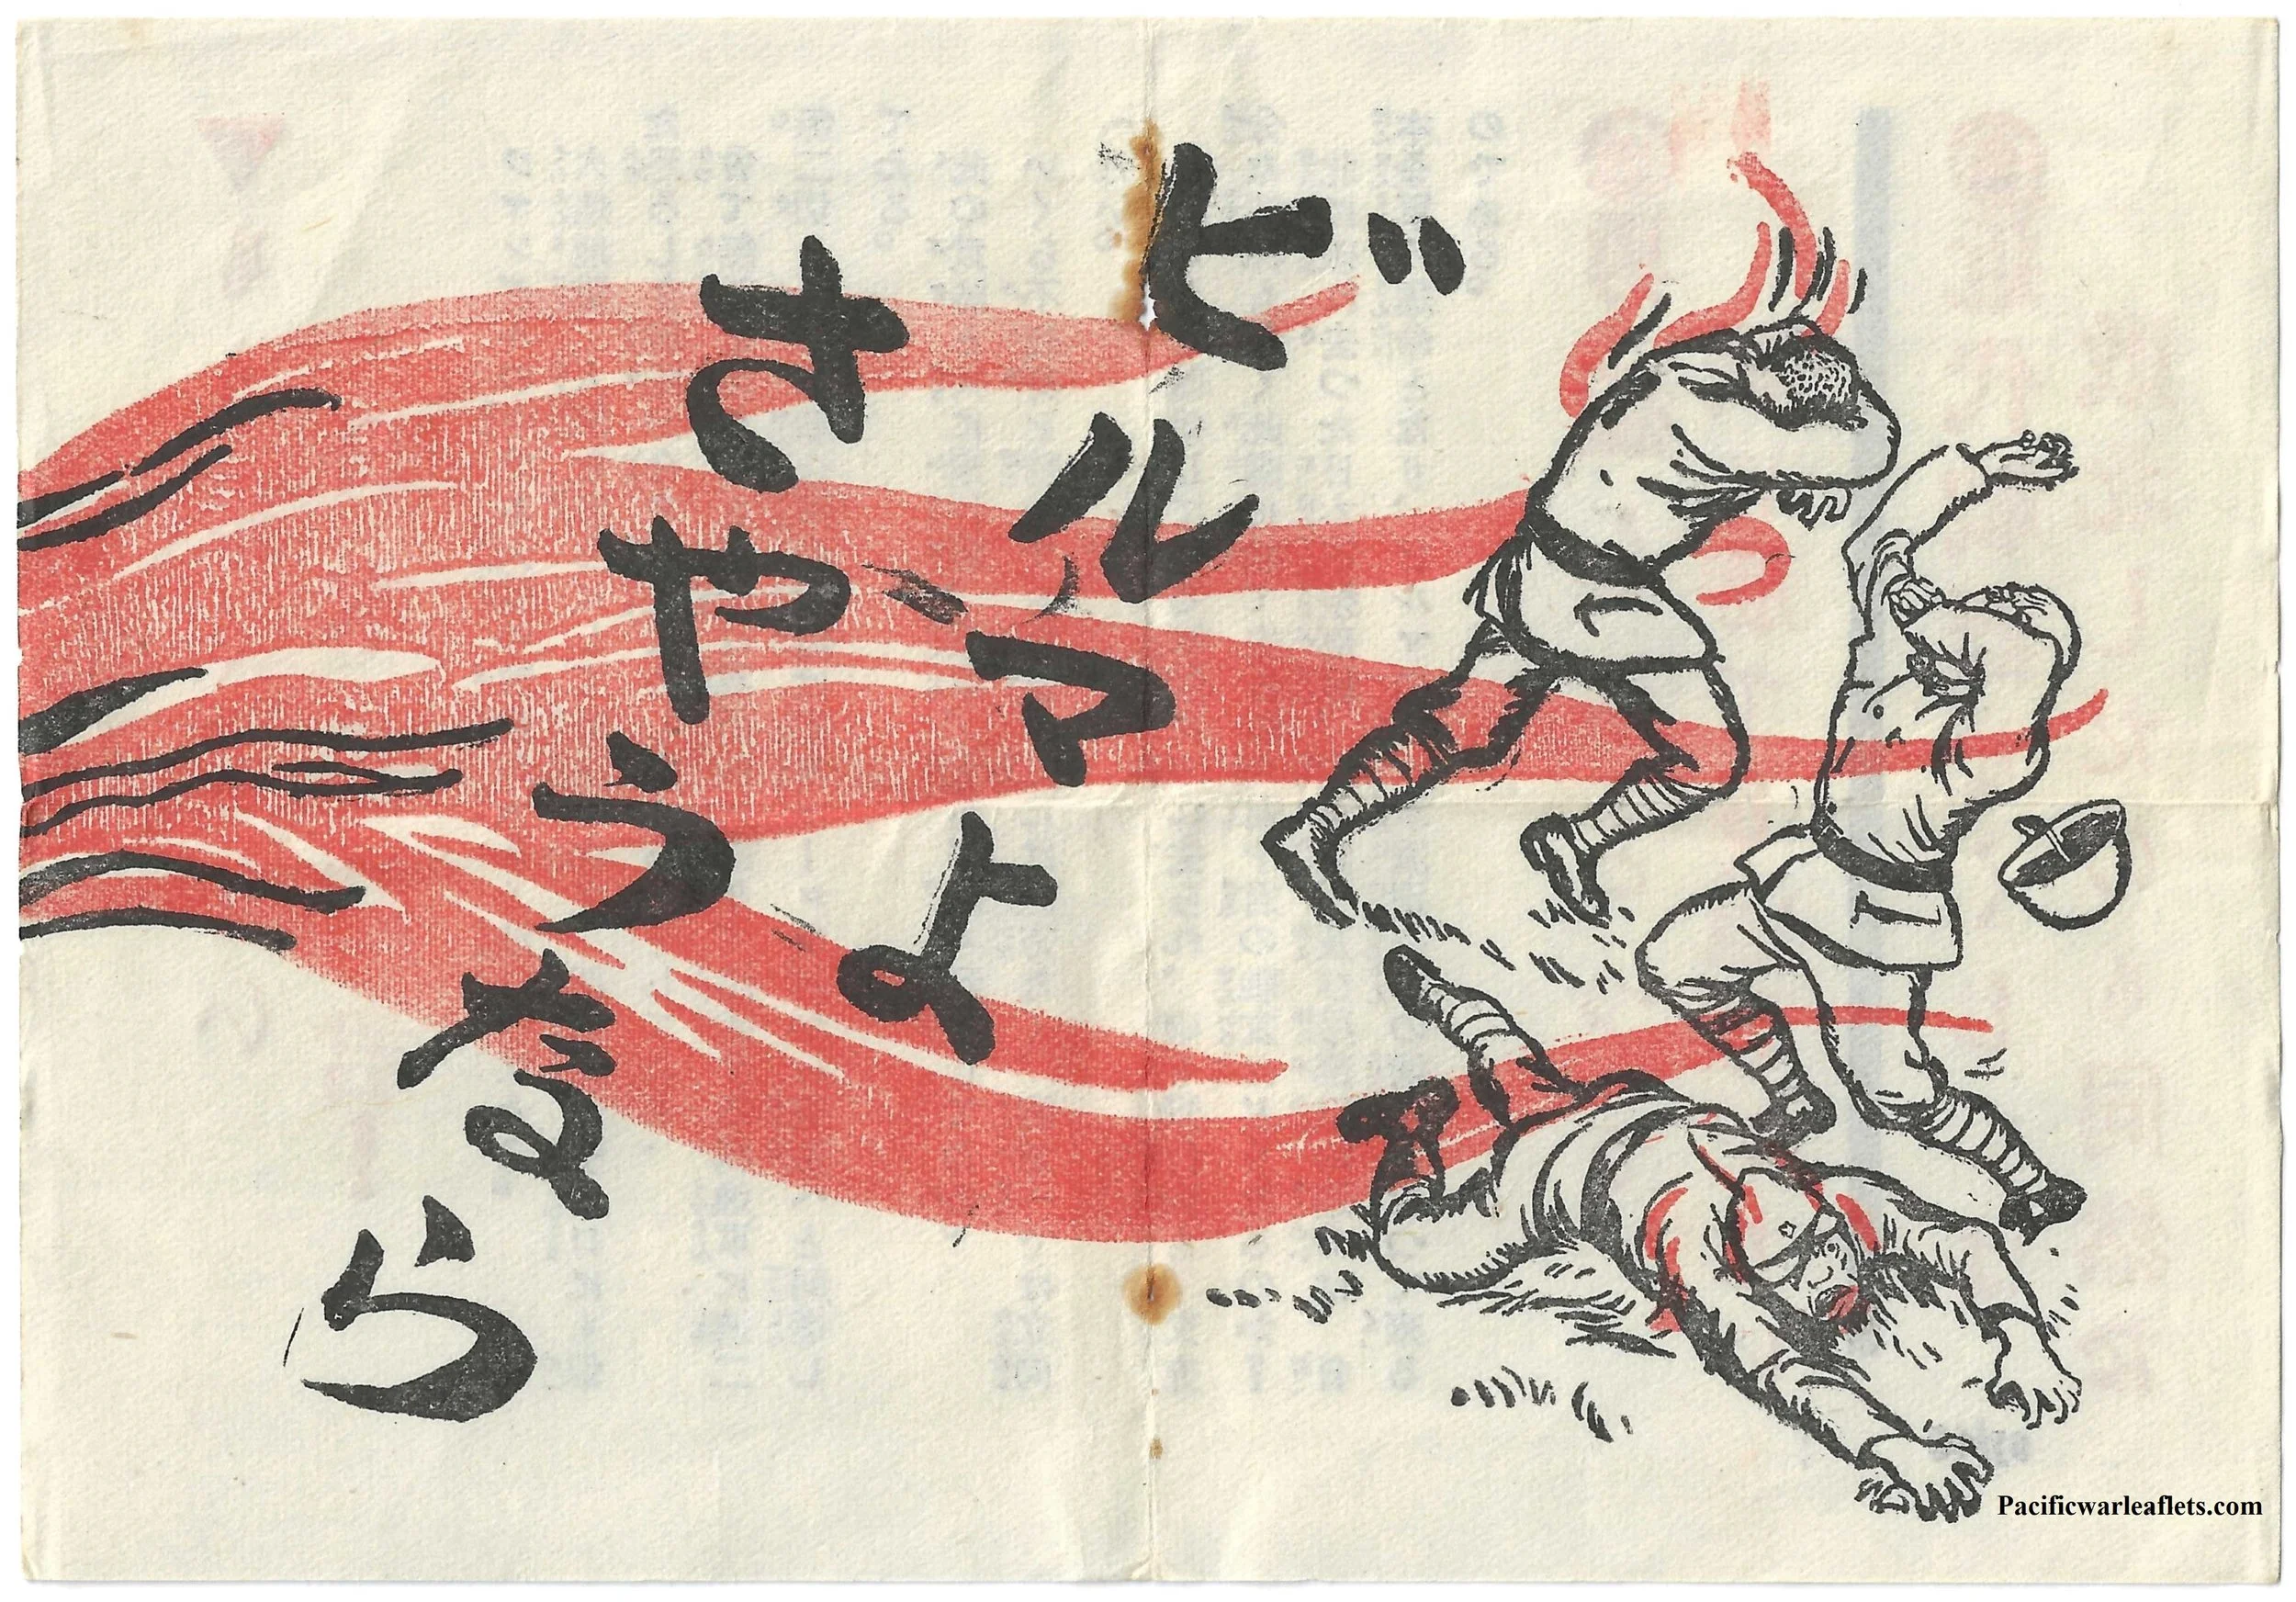 ビルマよ
さやうなら
Pacificwarleaflets.com